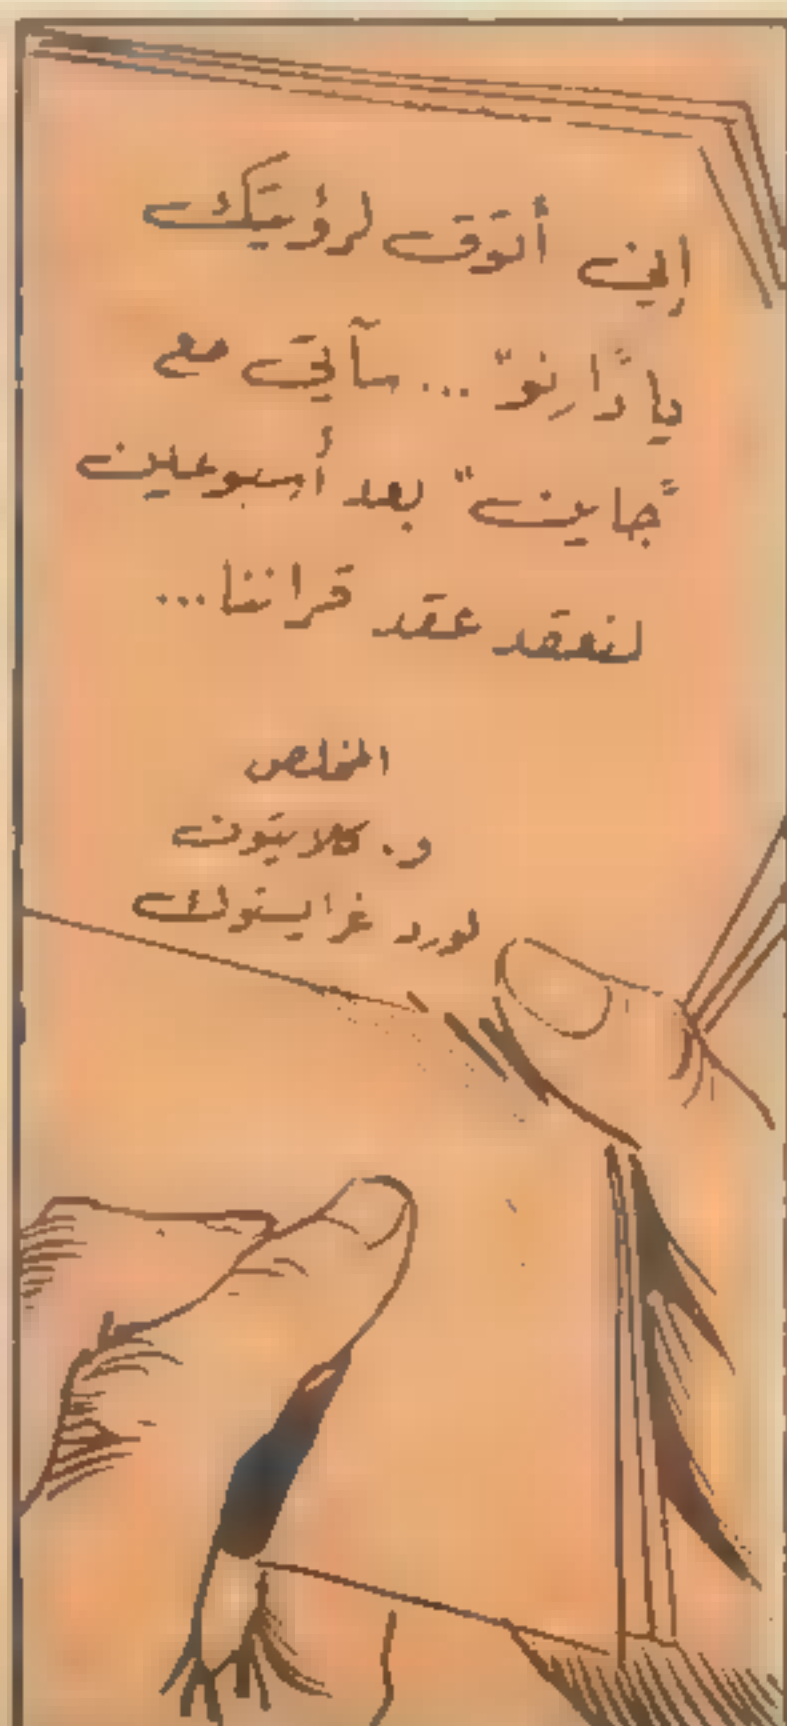 إني أتوق لرؤيتك
يا "دارنو" ... سآتي مع
"جاين" بعد أسبوعين
لنعقد عقد قراننا...
المخلص
و. كلايتون
لورد غرايستوك